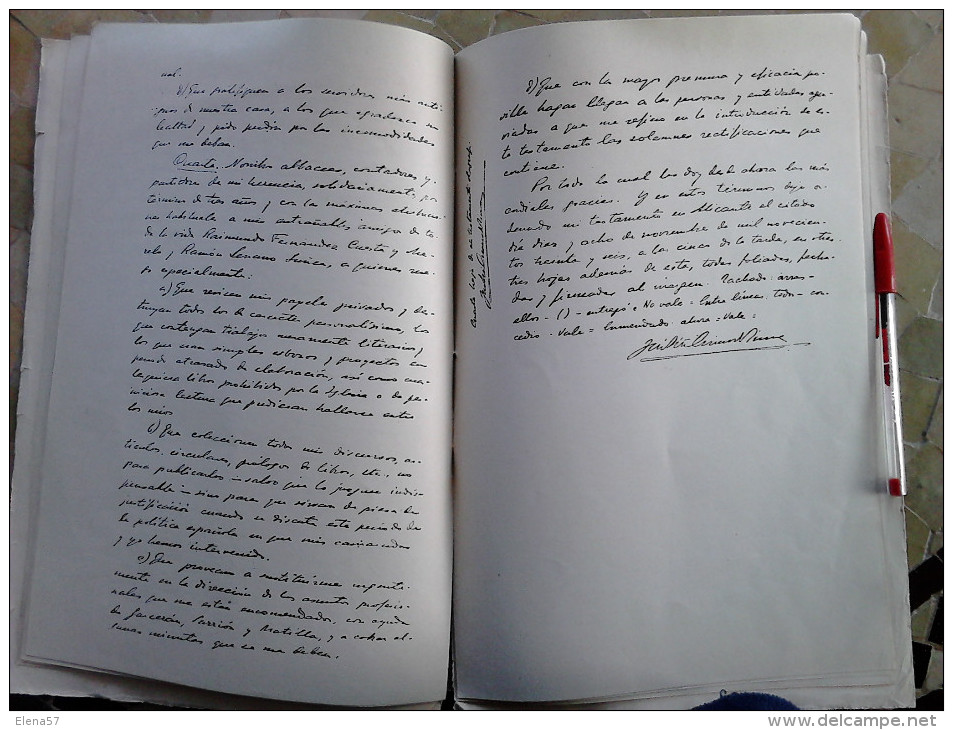 ual.
d) Que gratifiquen a los servidores más anti-
guos de nuestra casa, a los que agradezco su
lealtad y pido perdón por las incomodidades
que me deban.
Cuarta. Nombro albaceas, contadores y
partidores de mi herencia, solidariamente, por
término de tres años y con las máximas atribucio-
nes habituales a mis entrañables amigos de to-
da la vida Raimundo Fernández Cuesta y Me-
relo y Ramón Serrano Suñer, a quienes rue-
go especialmente:
a) Que revisen mis papeles privados y des-
truyan todos los de carácter personalísimo, los
que contengan trabajos meramente literarios y
los que sean simples esbozos y proyectos en
período atrasado de elaboración, así como cua-
lesquiera libros prohibidos por la Iglesia o de per-
niciosa lectura que pudieran hallarse entre
los míos
b) Que coleccionen todos mis discursos, ar-
tículos, circulares, prólogos de libros, etc., no
para publicarlos – salvo que lo juzguen indis-
pensable – sino para que sirvan de pieza de
justificación cuando se discuta este período de
la política española en que mis camaradas
y yo hemos intervenido.
c) Que provean a sustituirme urgente-
mente en la dirección de los asuntos profesio-
nales que me están encomendados, con ayuda
de Garcerán, Sarrión y Matilla, y a cobrar al-
gunas minutas que se me deben.
d) Que con la mayor premura y eficacia po-
sible hagan llegar a las personas y entidades agra-
viadas a que me refiero en la introducción de es-
te testamento las solemnes rectificaciones que
contiene.
Por todo lo cual les doy desde ahora las más
cordiales gracias. Y en estos términos dejo or-
denado mi testamento en Alicante el citado
día diez y ocho de noviembre de mil novecien-
tos treinta y seis, a las cinco de la tarde, en otras
tres hojas además de esta, todas foliadas, fecha-
das y firmadas al margen. Tachado: arras-
ellos - () - entregó = No vale = Entre línea: todo - con-
cedió - Vale = Enmendado: ahora = Vale =
Elena57
www.delcampe.net